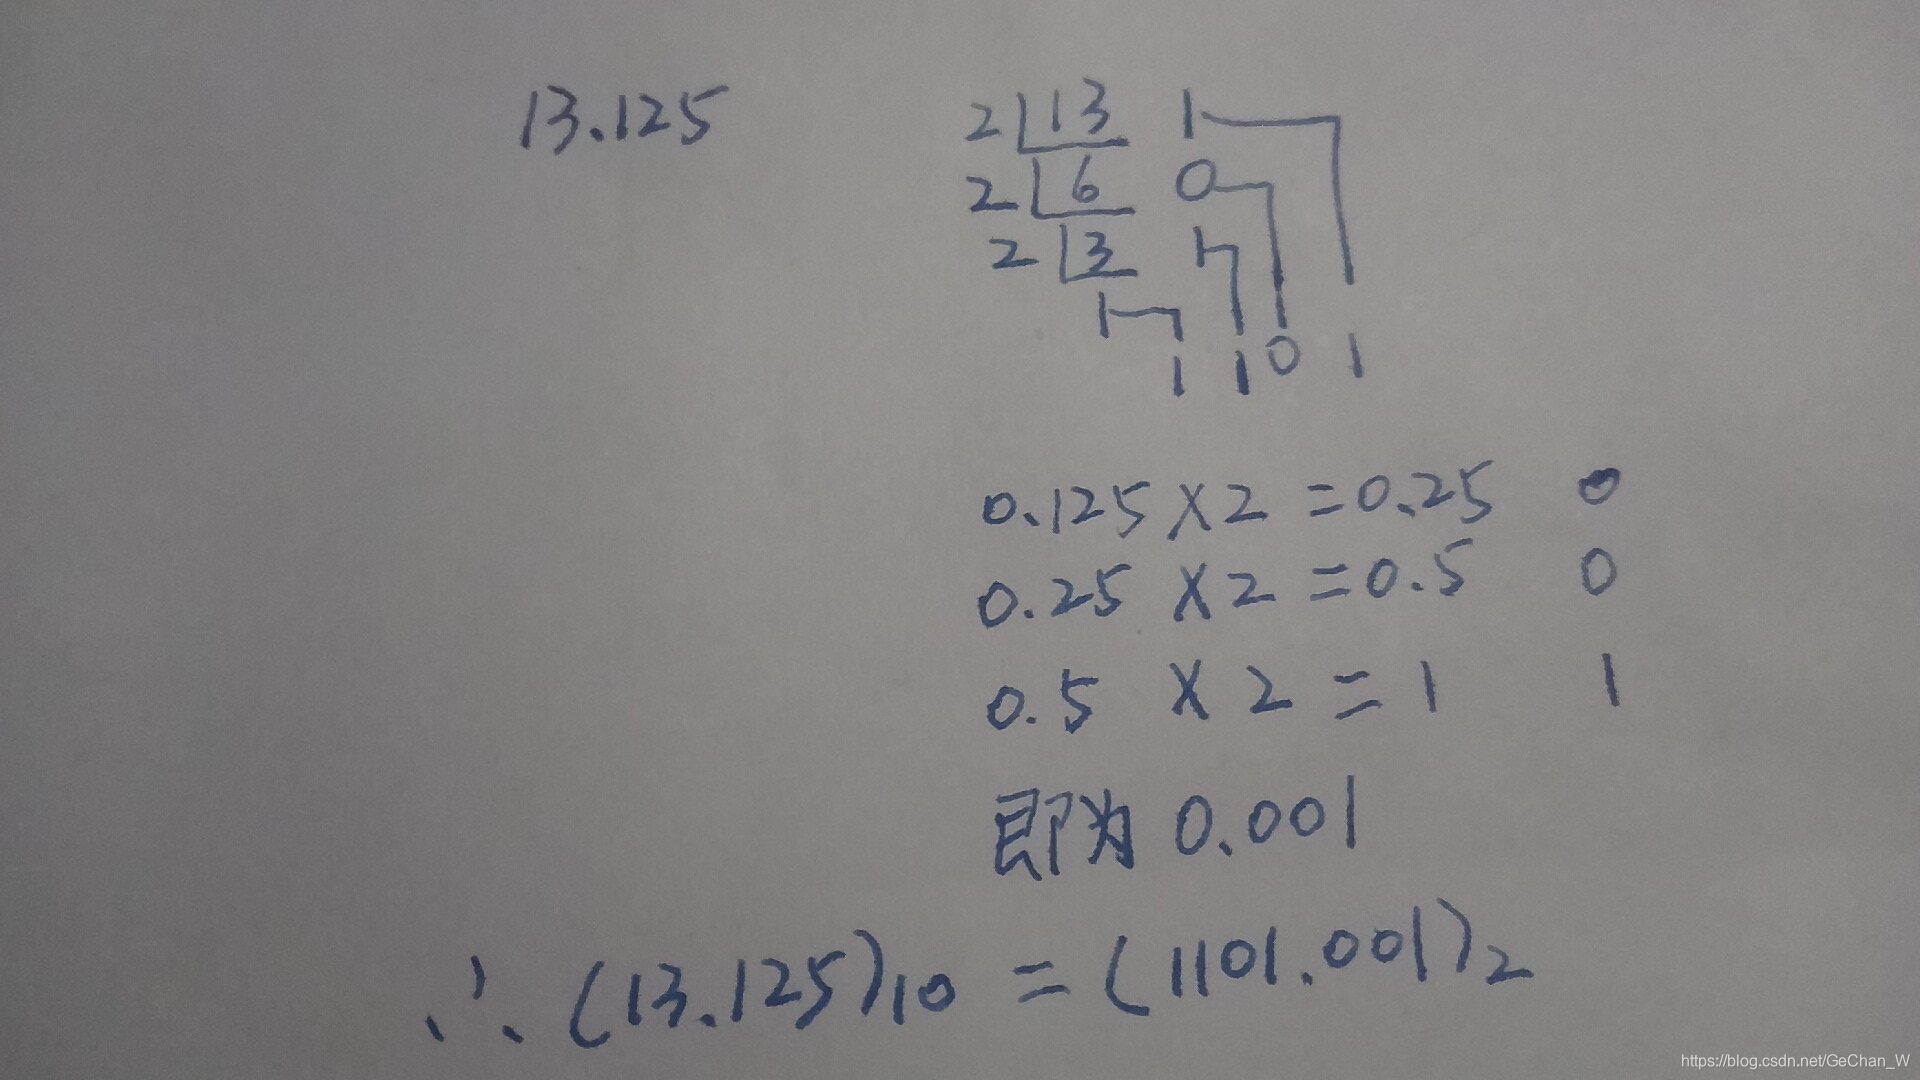 13.125
2 13 1
2 6 0
2 3 1
1
1 1 0 1
0.125 × 2 = 0.25 0
0.25 × 2 = 0.5 0
0.5 × 2 = 1 1
即为 0.001
∴ (13.125)10 = (1101.001)2
https://blog.csdn.net/GeChan_W